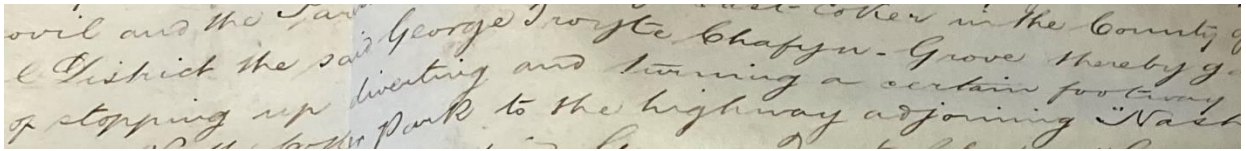 ovil and the Par East-Coker in the County of
District the said George Troyte Chafyn-Grove thereby g
of stopping up diverting and turning a certain footway
Park to the highway adjoining "Nash